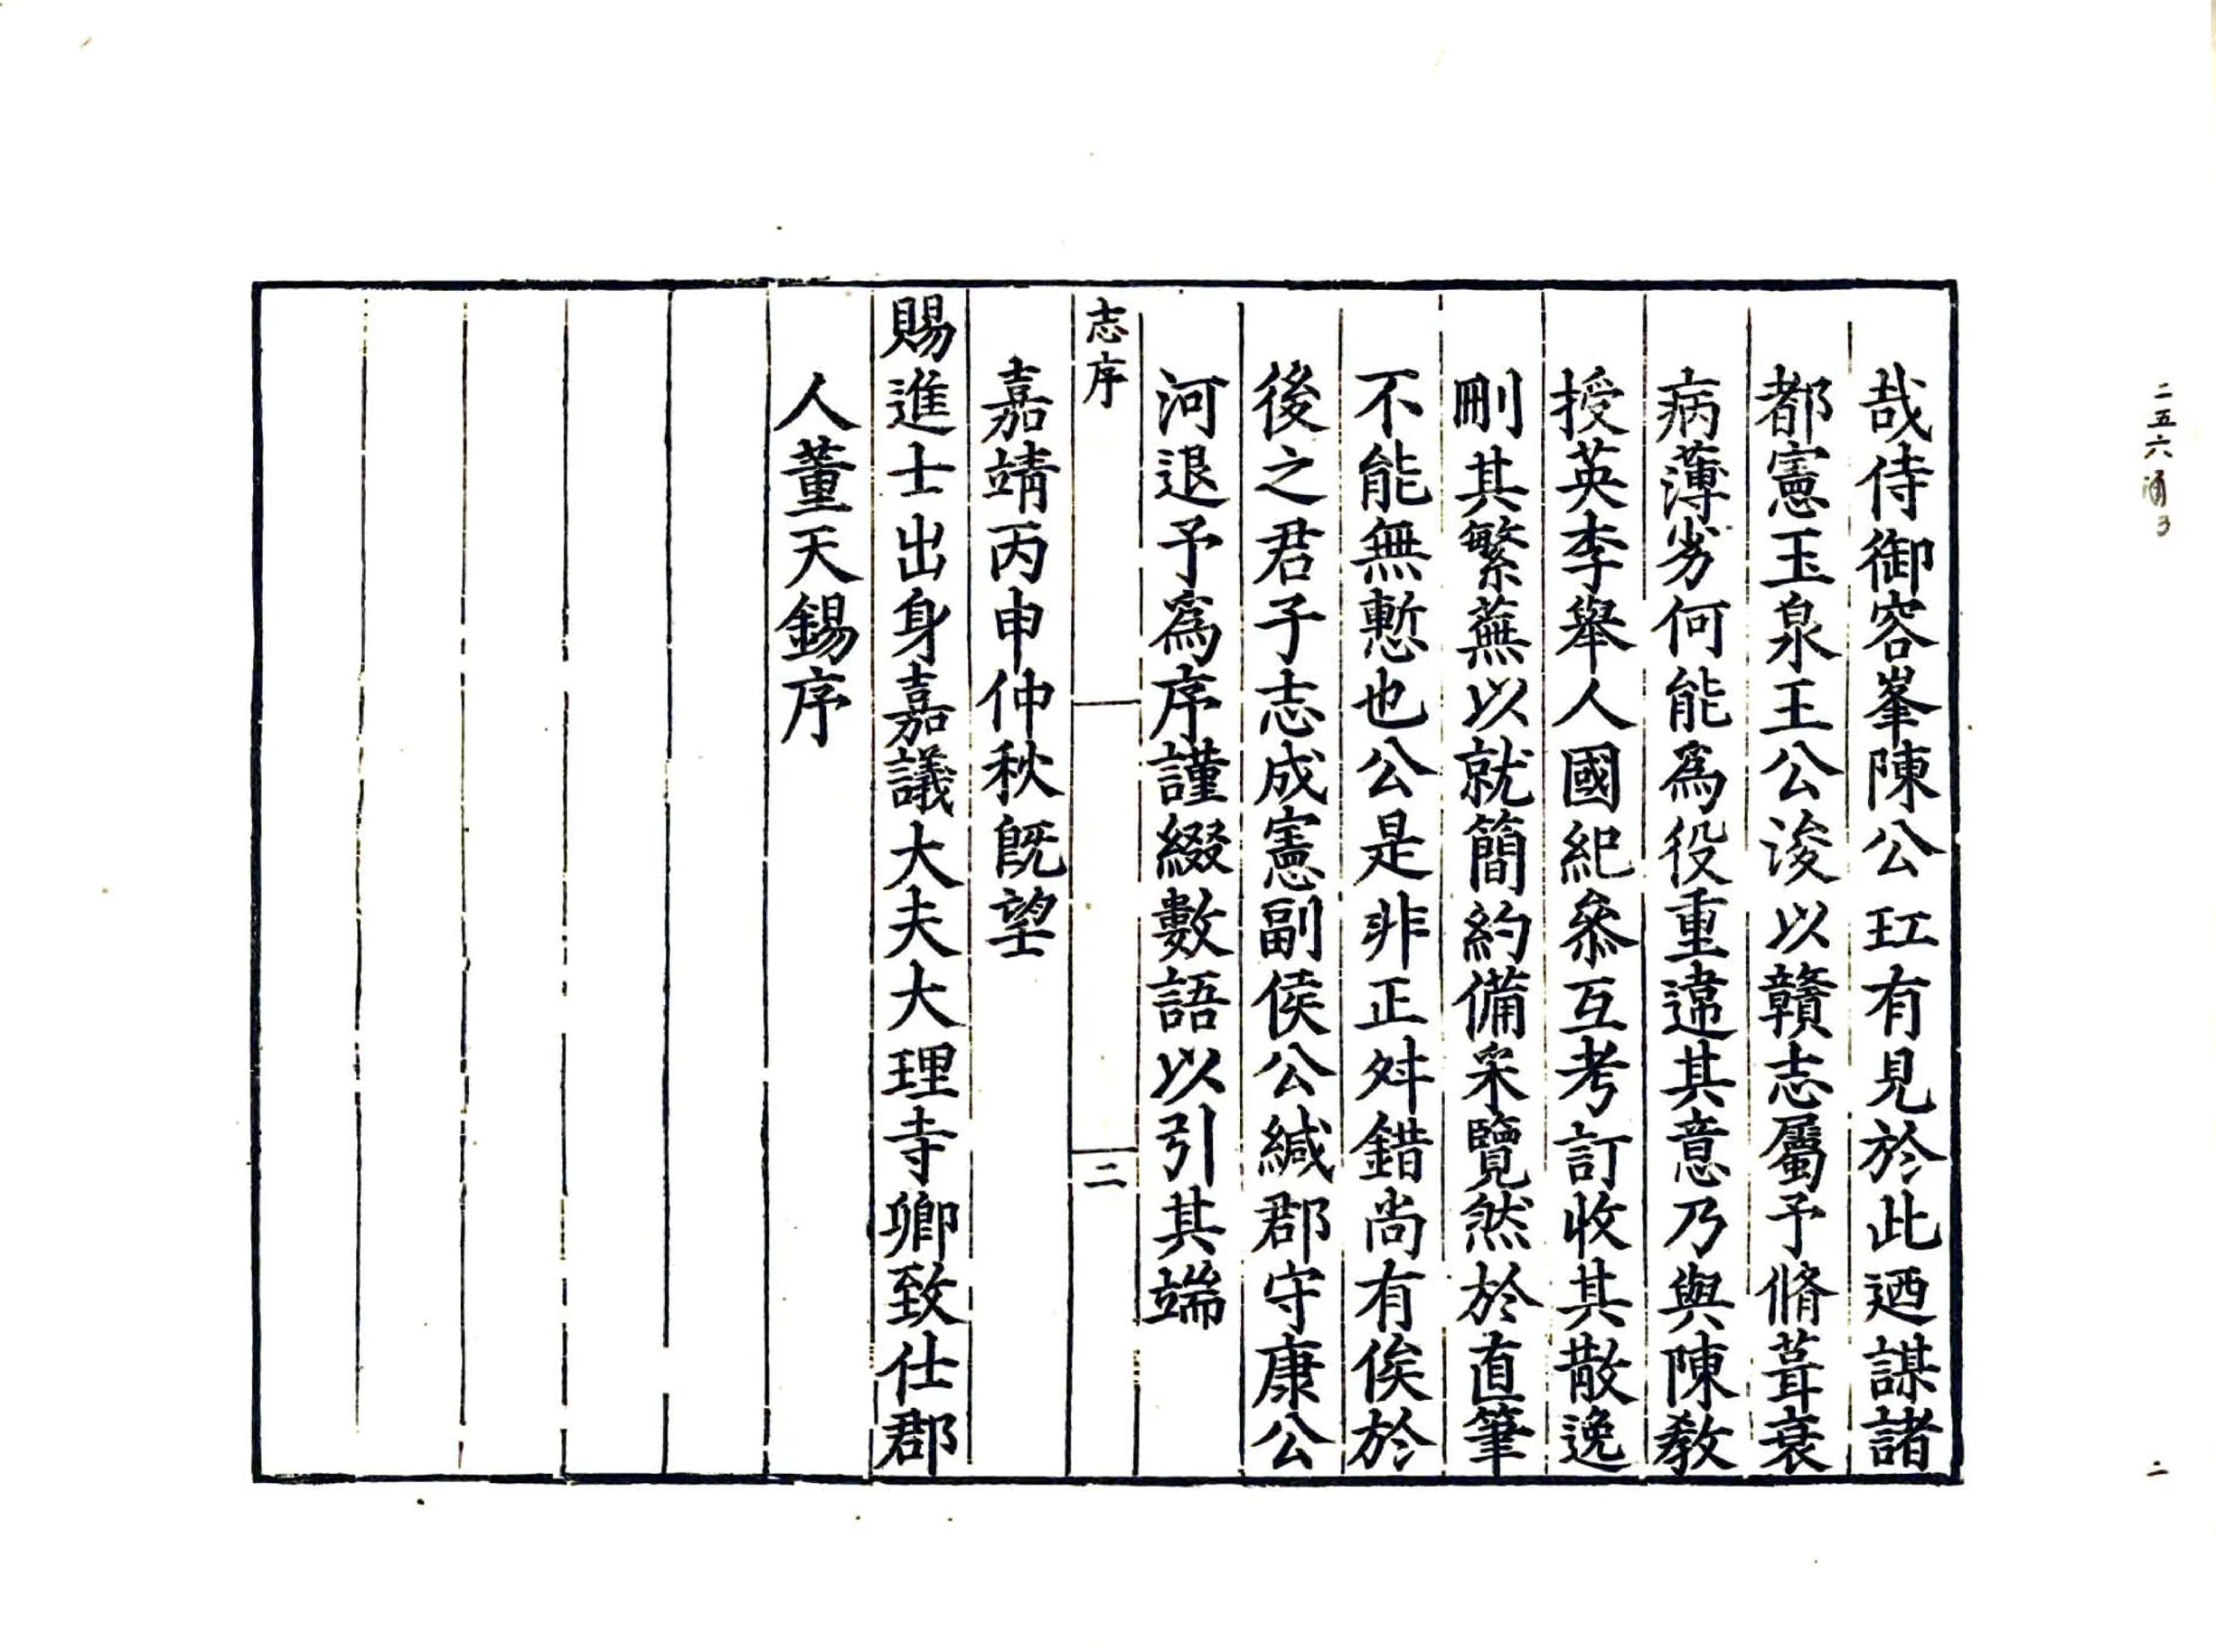 哉侍御容峯陳公玒有見於此迺謀諸
都憲玉泉王公浚以贛志屬予脩葺衰
病薄劣何能爲役重違其意乃與陳教
授英李舉人國紀叅互考訂收其散逸
刪其繁蕪以就簡約備采覽然於直筆
不能無慙也公是非正舛錯尚有俟於
後之君子志成憲副侯公緘郡守康公
河退予爲序謹綴數語以引其端
志序
二
嘉靖丙申仲秋旣望
賜進士出身嘉議大夫大理寺卿致仕郡
人董天錫序
二